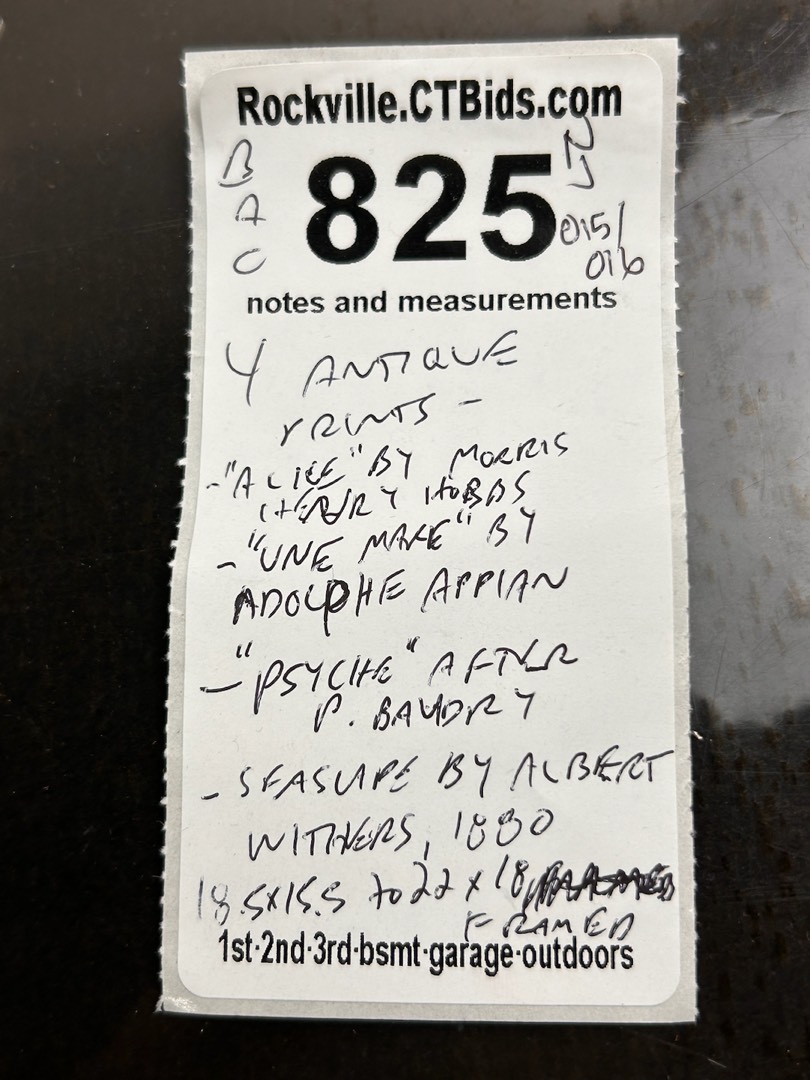 Rockville.CTBids.com
B
A
C
825
015/
016
notes and measurements
4 ANTIQUE
PRINTS -
- "ALICE" BY MORRIS
HENRY HOBBS
- "UNE MARE" BY
ADOLPHE APPIAN
- "PSYCHE" AFTER
P. BAUDRY
- SEASCAPE BY ALBERT
WITHERS, 1880
18.5x15.5 to 22 x 18
FRAMED
1st·2nd·3rd·bsmt·garage·outdoors